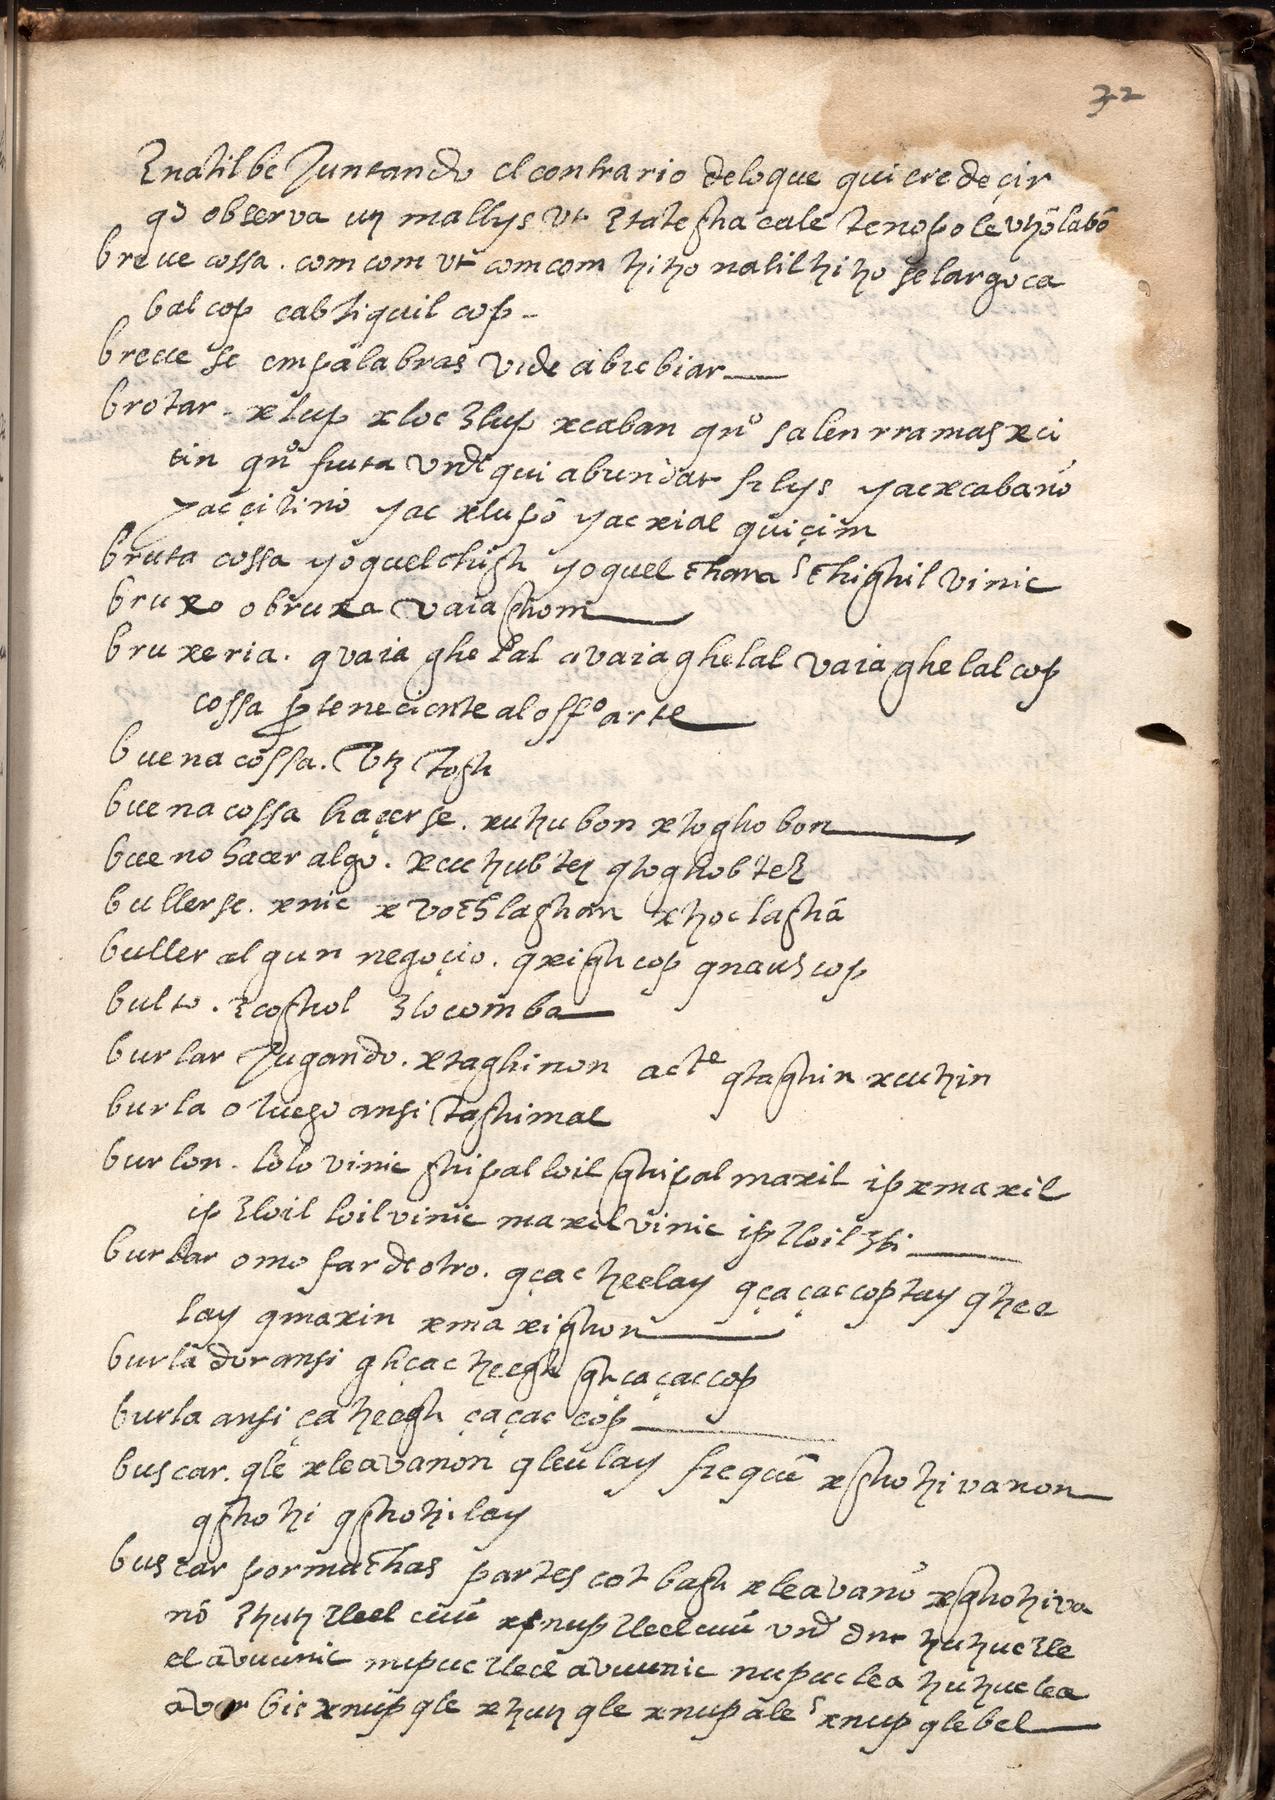 32
Ɛnatilbe Juntando el contrario deloque quiere deçir
qdo observa uꜩ mallys vt Ɛtateghacale tenopole vꜩō labō
breue cossa . comcom vt comcom ꜩiꜩo nalil ꜩiꜩo se largo ca
bal cop cabtiquil cop -
breue se empalabras vide abrebiar
brotar - xlup xloc Ɛlup xcaban qnº salen rramas xci
tin qnº fruta vnde qui abundat filys yacxcabanō
yacçitinō yac xlupō yac xial quiçim
bruta cossa yoquelchigh yoquel chana s chighil vinic
bruxo o bruxa vaiaghom
bruxeria . qvaiaghelal avaiaghelal vaiaghelal cop
cossa perteneciente al offº arte
buena cossa . Vtꜩ togh
buena cossa haçerse . xuꜩubon xtoghobon
bueno hacer algo . xcuꜩubteꜩ qtoghobteꜩ
bullerse . xnic xvochlaghan xꜩoclaghā
buller algun negoçio . qxigh cop qnaus cop
bulto . Ɛcoghol Ɛlocomba
burlar Jugando . xtaghinon acte qtaghin xcuꜩin
burla o luego ansi taghimal
burlon . lolo vinic ghipalloil ghipalmaxil ip xmaxil
ip Ɛloil loilvinic maxilvinic ip Ɛloil Ɛti
burlar o mofar de otro . qçac ꜩeelay qçaçaccoptay qꜩee
lay qmaxin xmaxighon
burlador ansi ghçac ꜩeegh ghçaçaccop
burla ansi çaꜩeegh çaçac cop
buscar . qle xleavanon qleulay frequē xghoꜩivanon
qghoꜩi qghoꜩilay
buscar por muchas partes cot bagh xleavanō xghoꜩiva
nō Ɛꜩuꜩ Ɛleel cuū xnup Ɛleel cuū vnde dnr ꜩuꜩuc Ɛle
el avuunic nupuc Ɛleel avuunic nupuc lea ꜩuꜩuc lea
bis xnup qle xꜩuꜩ qle xnupale s xnup qlebel